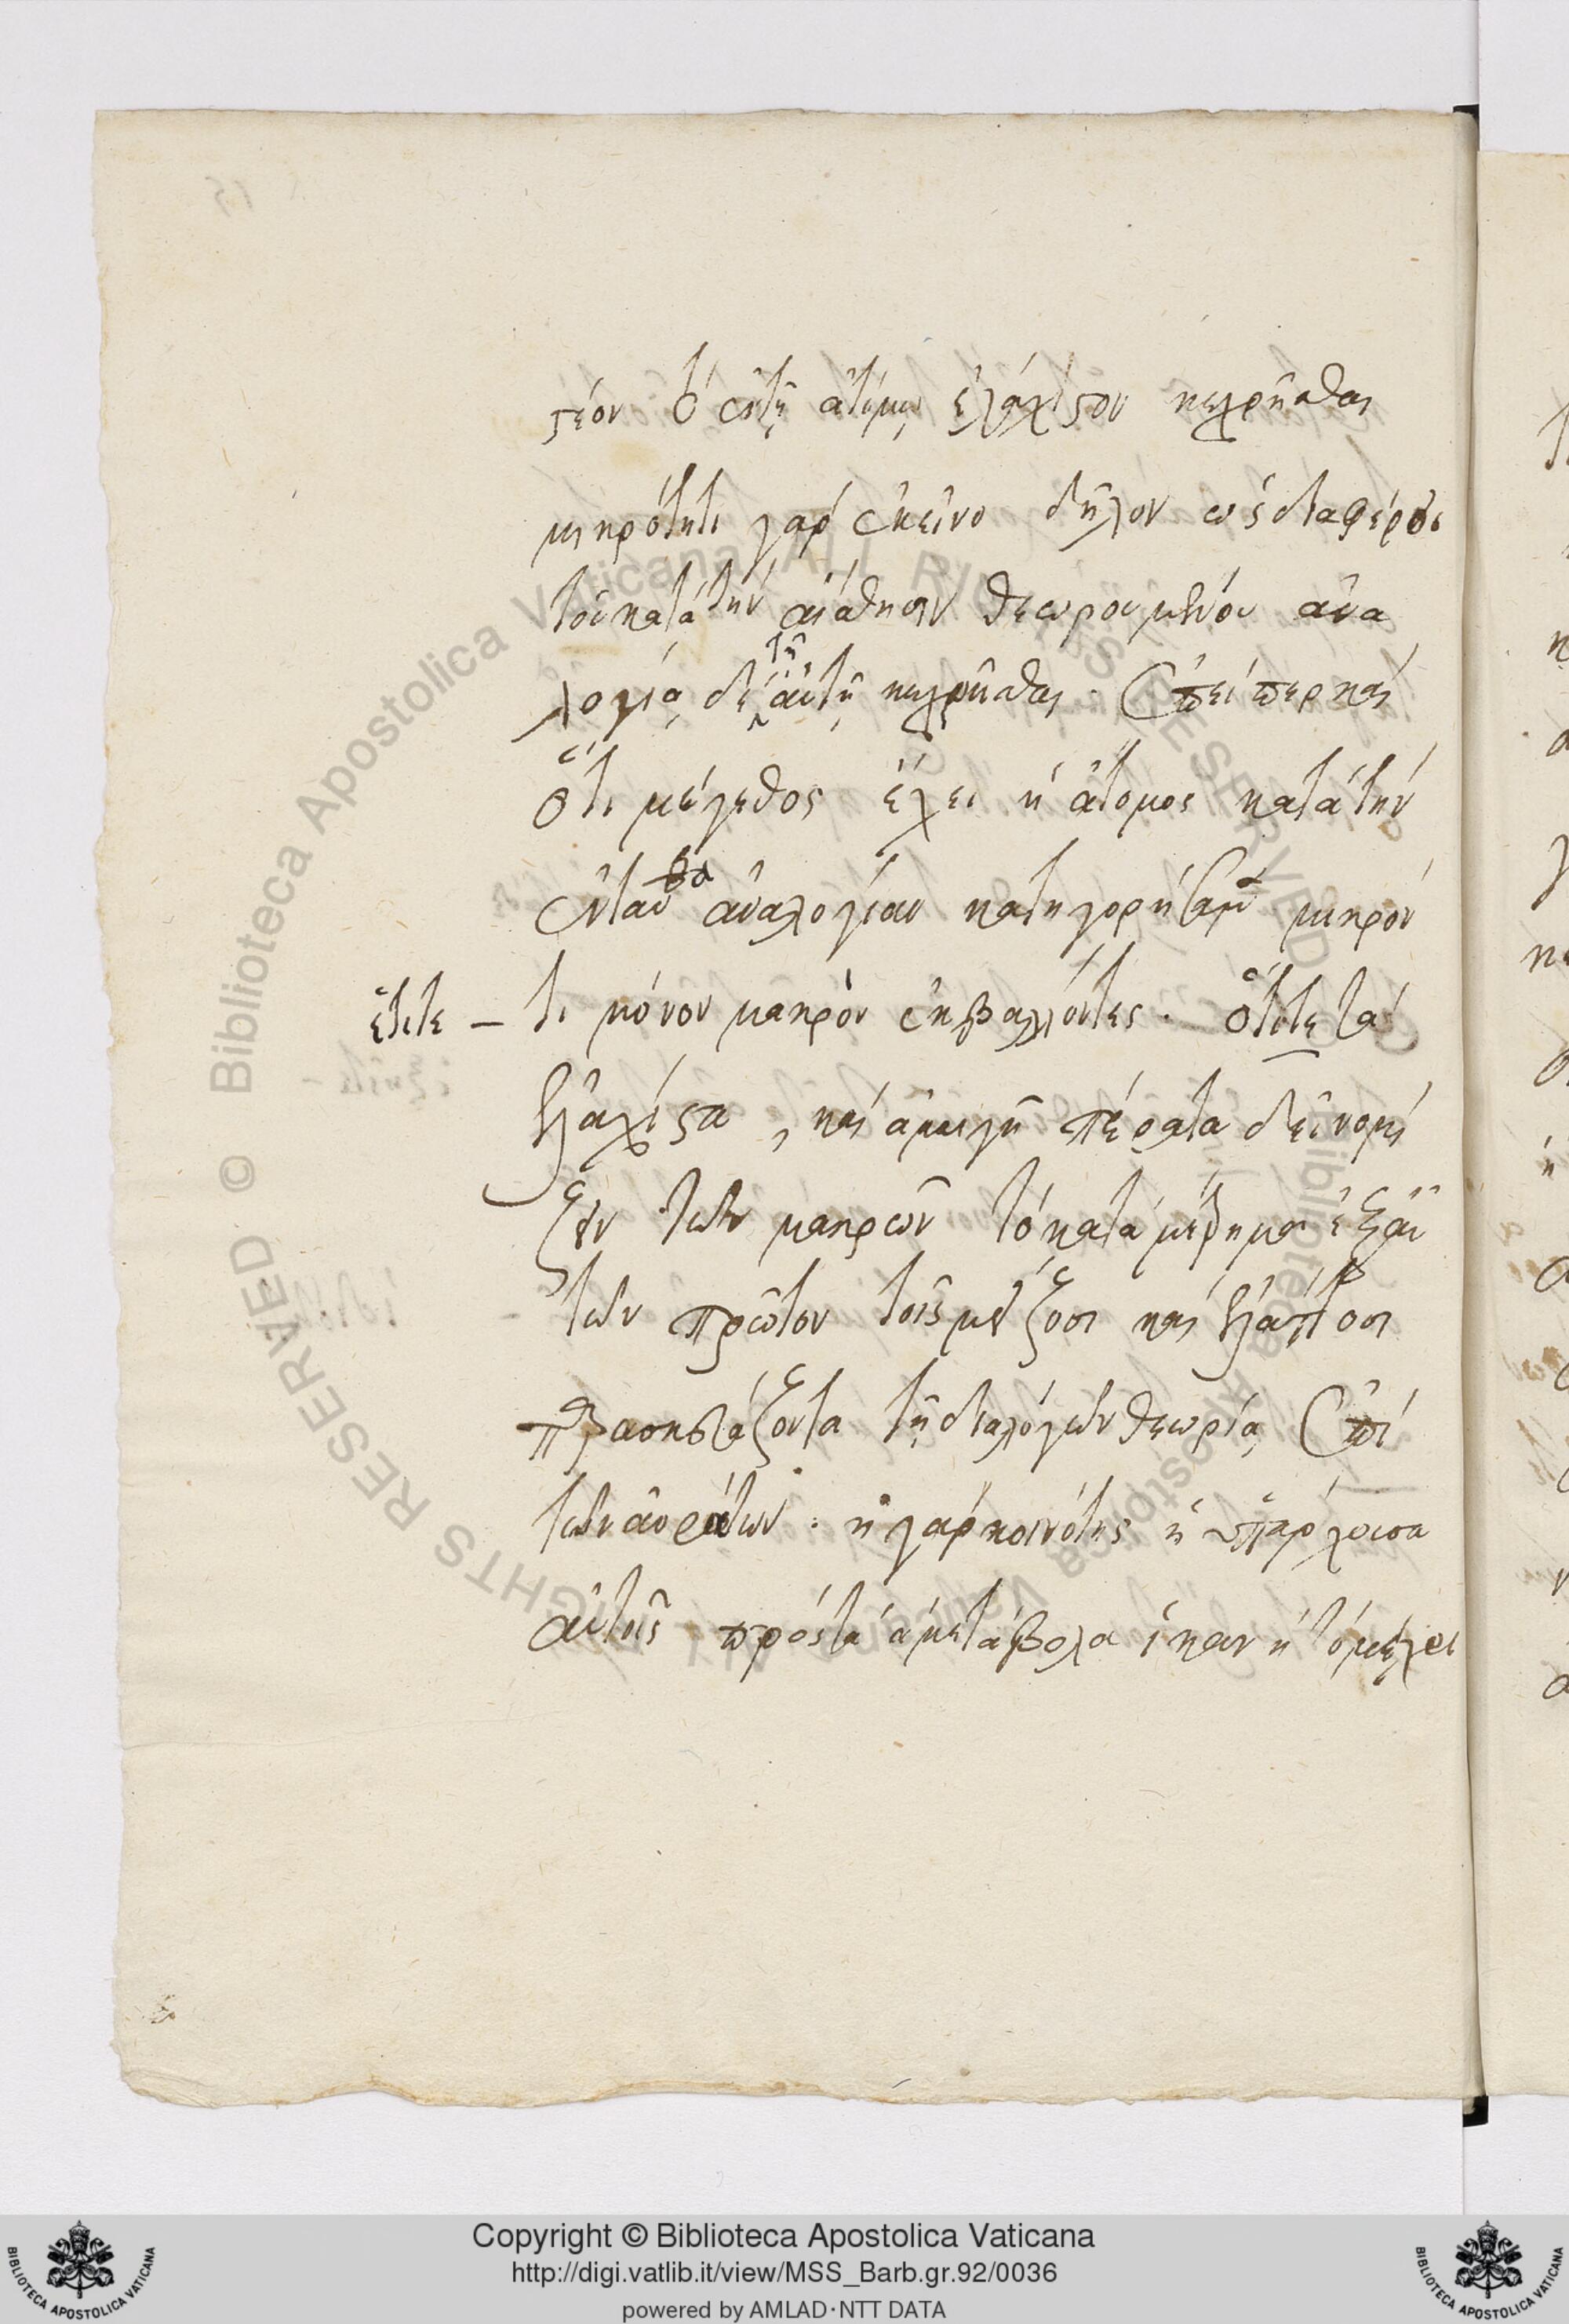 στέον τὸ ἐν τῇ ἀτόμῳ ἐλάχιστον κεχρῆσθαι
μικρότητι γὰρ ἐκεῖνο δῆλον ὡς διαφέρει
τοῦ κατὰ τὴν αἴσθησιν θεωρουμένου ἀνα
λογίᾳ δὲ τῇ αὐτῇ κεχρῆσθαι. ἐπείπερ καὶ
ὅτι μέγεθος ἔχει ἡ ἄτομος κατὰ τὴν
ἐνταῦθα ἀναλογίαν κατηγορήσαμεν μικρόν
ἔτι τε – τι μόνον μακρὸν ἐκβάλλοντες. ὅτι τε τὰ
ἐλάχιστα, καὶ ἀμιγῆ πέρατα δεῖ νομί
ζειν τῶν μακρῶν τὸ καταμέτρημα ἐξ αὑ
τῶν πρῶτον τοῖς μείζοσι καὶ ἐλάττοσι
παρασκευάζοντα τῇ διὰ λόγων θεωρίᾳ ἐπὶ
τῶν ἀοράτων. ἡ γὰρ κοινότης ἡ ὑπάρχουσα
αὐτοῖς πρὸς τὰ ἀμετάβολα ἱκανὴ τὸ μέχρι
Copyright © Biblioteca Apostolica Vaticana
http://digi.vatlib.it/view/MSS_Barb.gr.92/0036
powered by AMLAD·NTT DATA
BIBLIOTECA APOSTOLICA VATICANA
BIBLIOTECA APOSTOLICA VATICANA
© Biblioteca Apostolica Vaticana ALL RIGHTS RESERVED
© Biblioteca Apostolica Vaticana ALL RIGHTS RESERVED